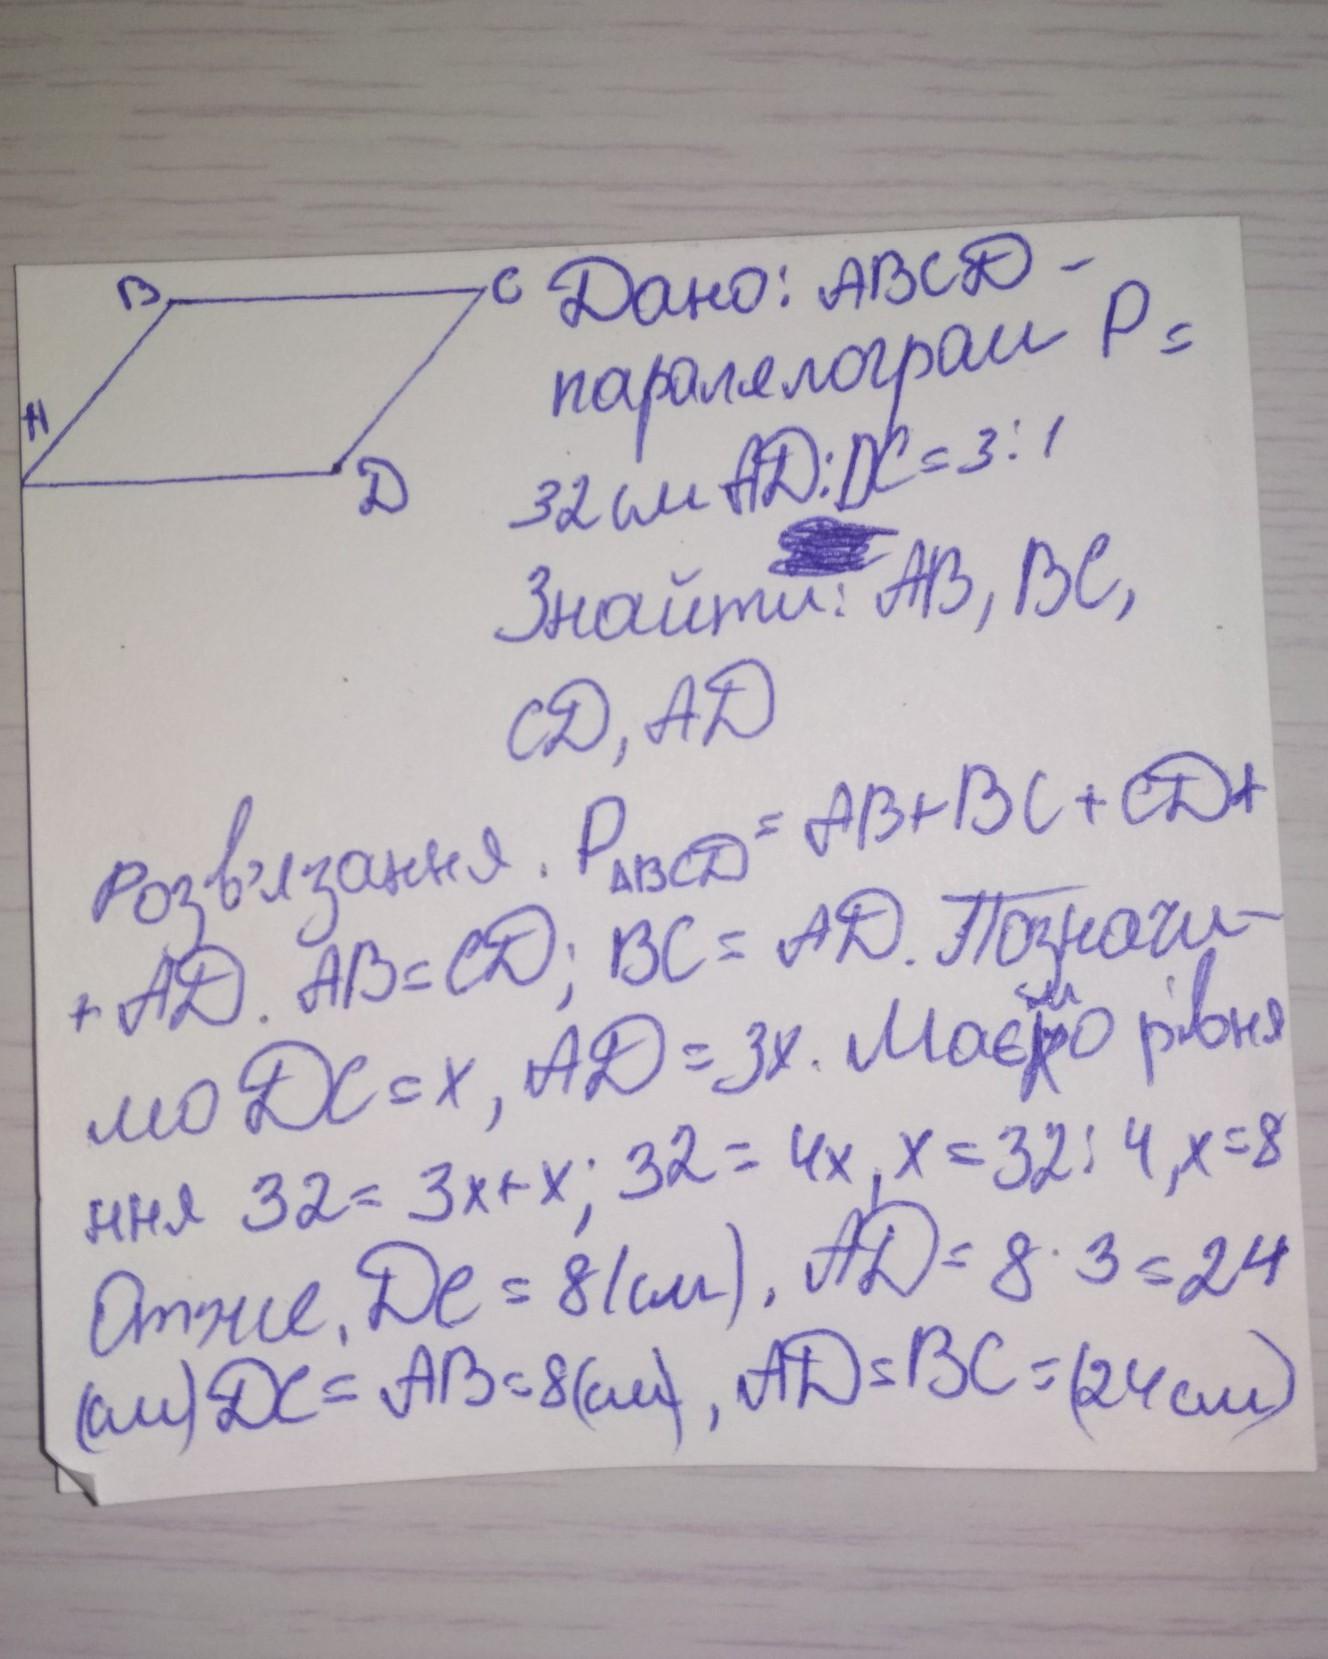 B
C
A
D
Дано: ABCD -
паралялограм P =
32 см AD:DC = 3:1
Знайти: AB, BC,
CD, AD
Розв'язання. PABCD = AB+BC+CD+
+ AD. AB=CD; BC = AD. Позначи-
мо DC = x, AD = 3x. Маємо рівня
ння 32 = 3x+x; 32 = 4x, x = 32:4, x=8
Отже, DC = 8(см), AD = 8·3 = 24
(см) DC = AB=8(см), AD=BC=(24см)